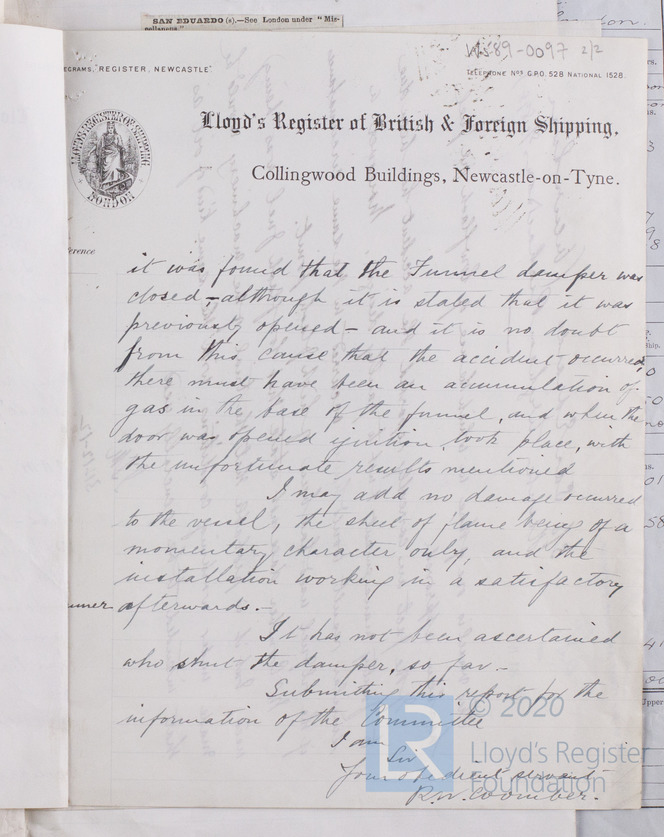 SAN EDUARDO (s).—See London under "Mis-
cellaneous."
W589-0097 2/2
EGRAMS, "REGISTER, NEWCASTLE"
TELEPHONE Nos G.P.O. 528 NATIONAL 1528.
LLOYD'S REGISTER OF SHIPPING
LONDON
Lloyd's Register of British & Foreign Shipping,
Collingwood Buildings, Newcastle-on-Tyne.
erence
it was found that the Funnel damper was
closed – although it is stated that it was
previously opened – and it is no doubt
from this cause that the accident occurred,
there must have been an accumulation of
gas in the base of the funnel, and when the
door was opened ignition took place, with
the unfortunate results mentioned
I may add no damage occurred
to the vessel, the sheet of flame being of a
momentary character only, and the
installation working in a satisfactory
afterwards.–
It has not been ascertained
who shut the damper, so far.–
Submitting this report for the
information of the Committee
I am
Sir
Your obedient servant
R.W. Coomber.
LR
© 2020
Lloyd's Register
Foundation